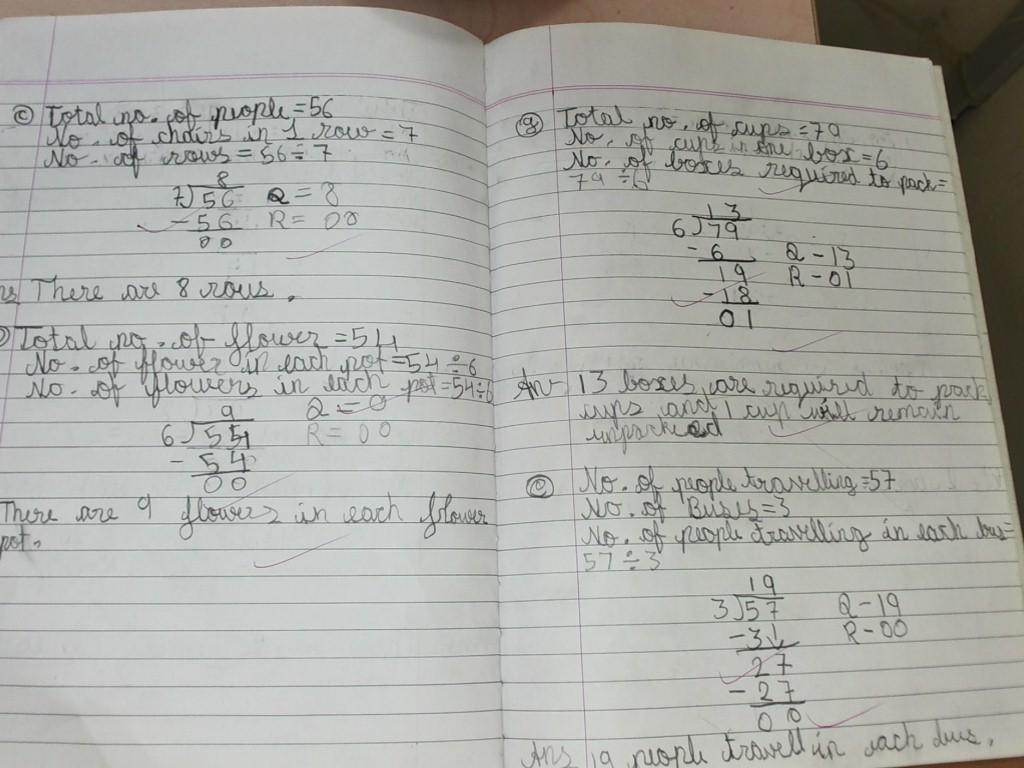 c Total no. of people = 56
No. of chairs in 1 row = 7
No. of rows = 56 ÷ 7
8
7)56 Q = 8
-56 R = 00
00
There are 8 rows.
Total no. of flower = 54
No. of flower in each pot = 54 ÷ 6
No. of flowers in each pot = 54 ÷ 6
9 Q = 9
6)54 R = 00
-54
00
There are 9 flowers in each flower
pot.
g Total no. of cups = 79
No. of cups in one box = 6
No. of boxes required to pack =
79 ÷ 6
13
6)79
-6 Q - 13
19 R - 01
-18
01
Ans 13 boxes are required to pack
cups and 1 cup will remain
unpacked
No. of people travelling = 57
No. of Buses = 3
No. of people travelling in each bus =
57 ÷ 3
19
3)57 Q - 19
-3↓ R - 00
27
-27
00
Ans 19 people travell in each bus.